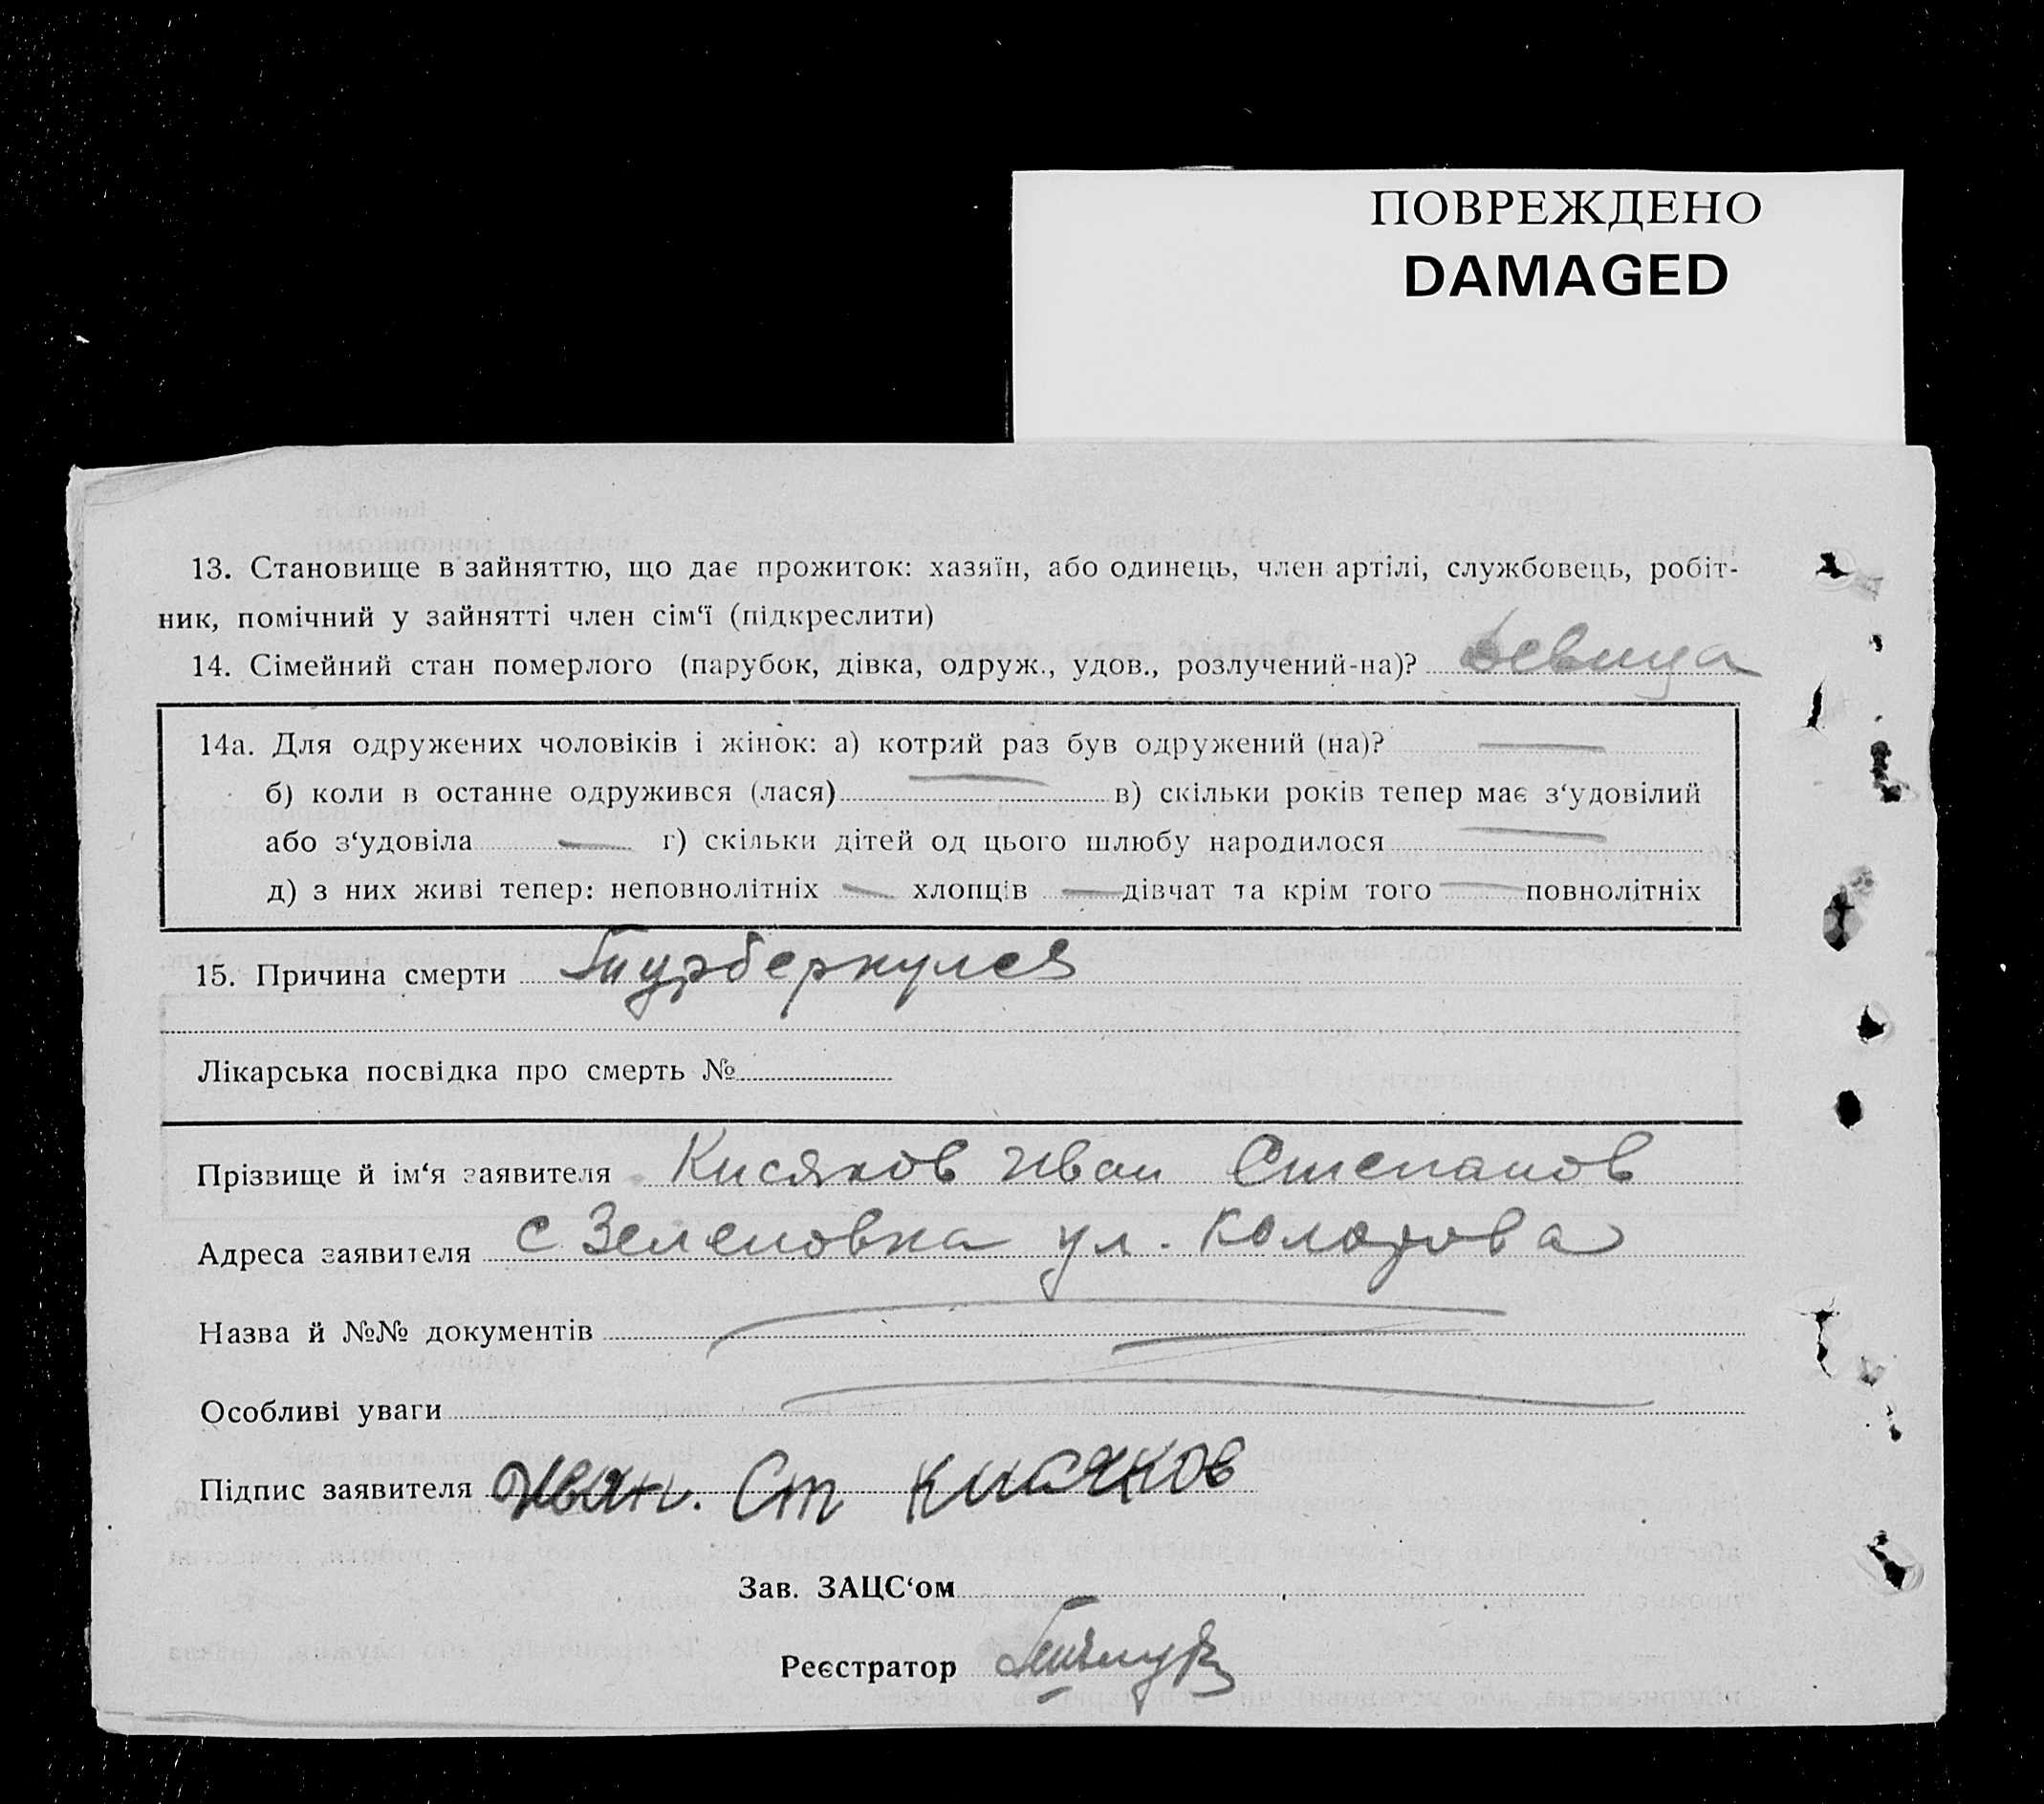 ПОВРЕЖДЕНО
DAMAGED
13. Становище в зайняттю, що дає прожиток: хазяїн, або одинець, член артілі, службовець, робіт-
ник, помічний у зайнятті член сім‘ї (підкреслити)
14. Сімейний стан померлого (парубок, дівка, одруж., удов., розлучений-на)? Девица
14а. Для одружених чоловіків і жінок: а) котрий раз був одружений (на)? —
б) коли в останне одружився (лася) — в) скільки років тепер має з‘удовілий
або з‘удовіла — г) скільки дітей од цього шлюбу народилося —
д) з них живі тепер: неповнолітніх — хлопців — дівчат та крім того — повнолітніх
15. Причина смерти Турберкулез
Лікарська посвідка про смерть №
Прізвище й ім‘я заявителя Кисяков Иван Степанов
Адреса заявителя с Зеленовка ул.
Назва й №№ документів
Особливі уваги
Підпис заявителя Иван. Ст Кисяков
Зав. ЗАЦС‘ом
Реєстратор